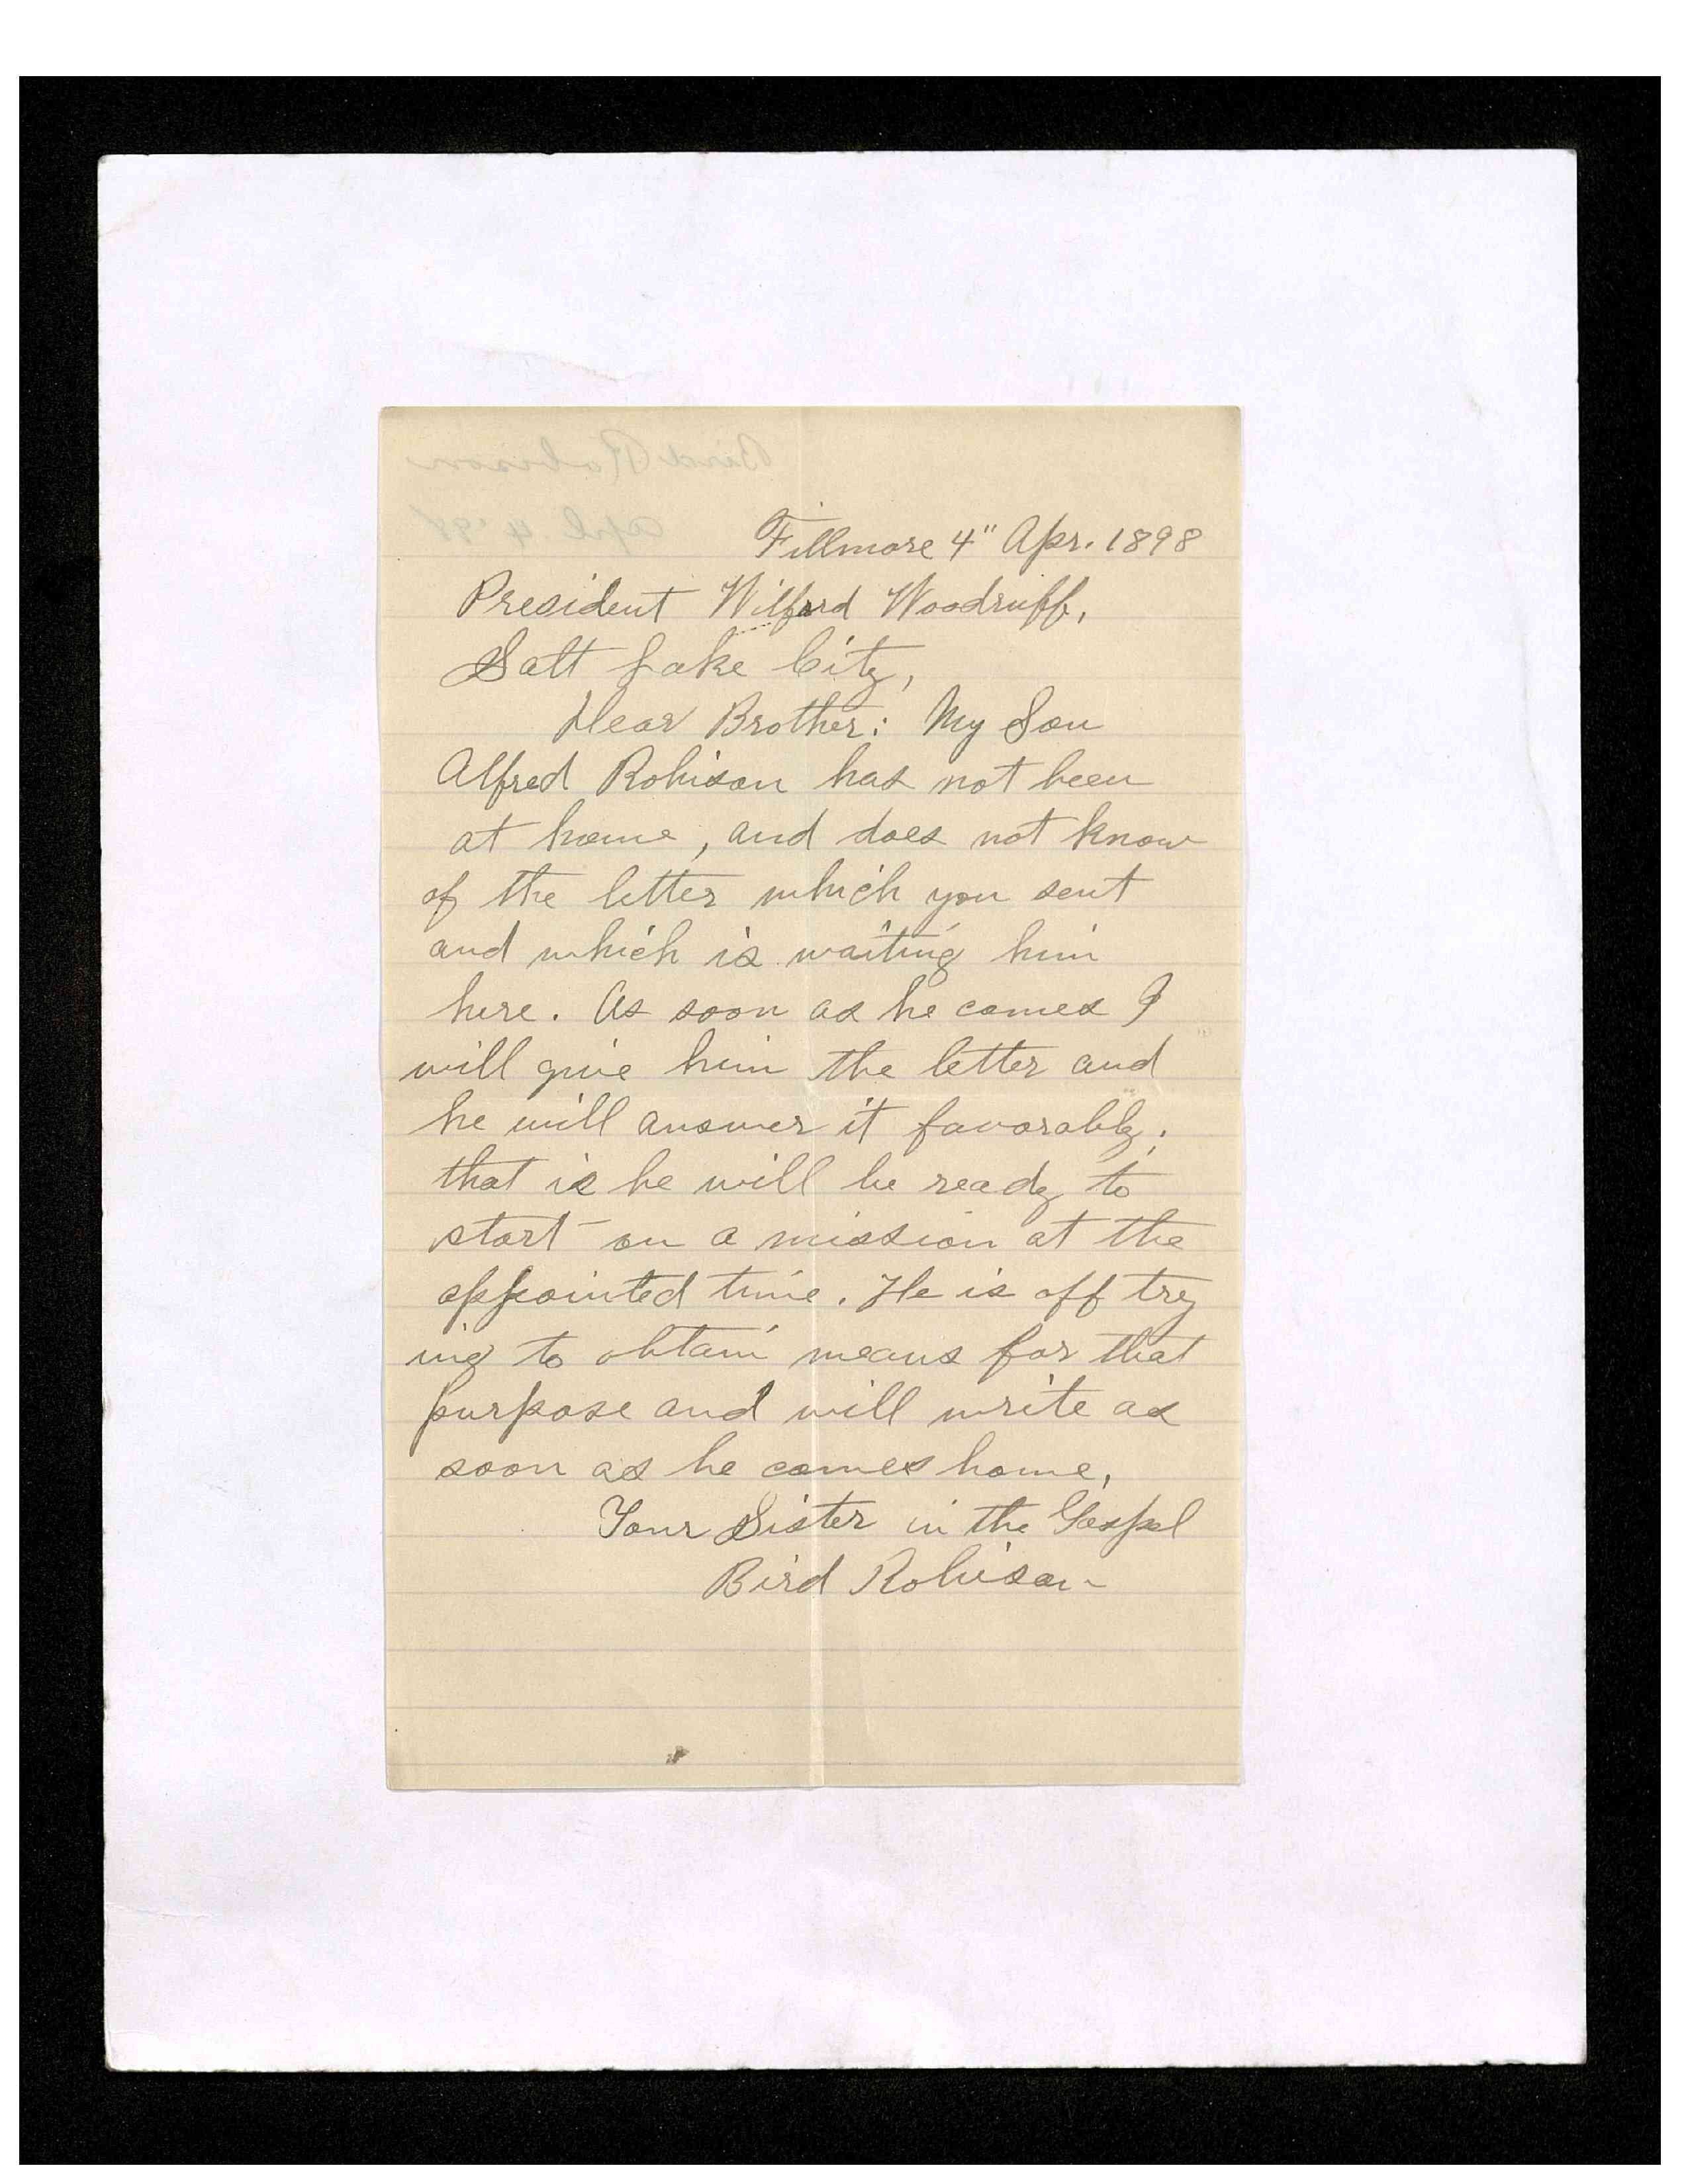 Bird Robison
Apl. 4 '98
Fillmore 4" Apr. 1898
President Wilford Woodruff,
Salt Lake City,
Dear Brother: My Son
Alfred Robison has not been
at home, and does not know
of the letter which you sent
and which is waiting him
here. As soon as he comes I
will give him the letter and
he will answer it favorably;
that is he will be ready to
start on a mission at the
appointed time. He is off try
ing to obtain means for that
purpose and will write as
soon as he comes home,
Your Sister in the Gospel
Bird Robison